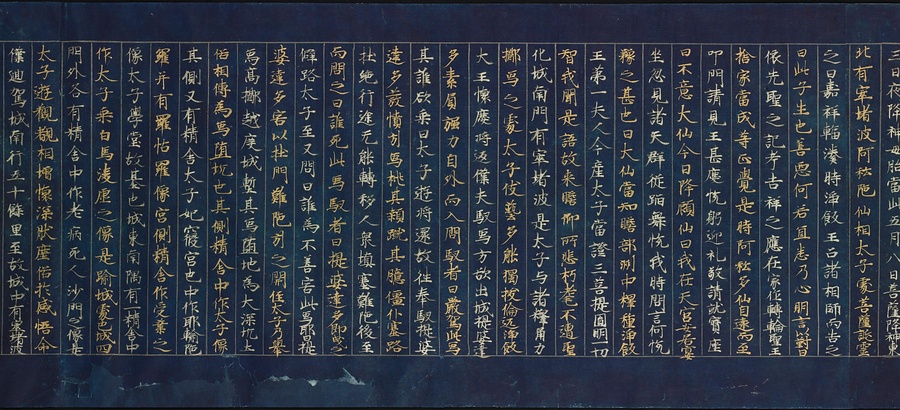 三日夜降神母胎當此五月八日菩薩降神東
北有窣堵波阿私陀仙相太子處菩薩誕靈
之日嘉祥輻湊時淨飯王召諸相師而告之
曰此子生也善惡何若宜悉乃心明言對曰
依先聖之記考吉祥之應在家作轉輪聖王
捨家當成等正覺是時阿私多仙自遠而至
叩門請見王甚慶悅躬迎礼敬請就寶座
曰不意大仙今日降顧仙曰我在天宮安居宴
坐忽見諸天群從蹈舞悅我時問言何悅
豫之甚也曰大仙當知贍部洲中釋種淨飯
王第一夫人今產太子當證三菩提圓明一切
智我聞是語故來瞻仰所悲朽耄不遭聖
化城南門有窣堵波是太子与諸釋角力
擲烏之處太子伎藝多能獨拔倫匹淨飯
大王懷慶將返僕夫馭烏方欲出城提婆達
多素負強力自外而入問馭者曰嚴駕此烏
其誰欲乘曰太子遊將還故往奉馭提婆
達多發憤引烏批其顙蹴其臆僵仆塞路
杜絕行途无能轉移人衆填塞難陀後至
而問之曰誰死此烏馭者曰提婆達多即曳之
僻路太子至又問曰誰為不善害此烏耶曰提
婆達多害以杜門難陀引之開徑太子乃舉
烏高擲越度城塹其烏墮地為大深坑土
俗相傳為烏墮坑也其側精舍中作太子像
其側又有精舍太子妃寢宮也中作耶輸陀
羅并有羅怙羅像宮側精舍作受業之
像太子學堂故基也城東南隅有一精舍中
作太子乘白馬淩虛之像是踰城處也城四
門外各有精舍中作老病死人沙門之像是
太子遊觀覩相增懷深猒塵俗於感悟命
僕迴駕城南行五十餘里至故城中有窣堵波